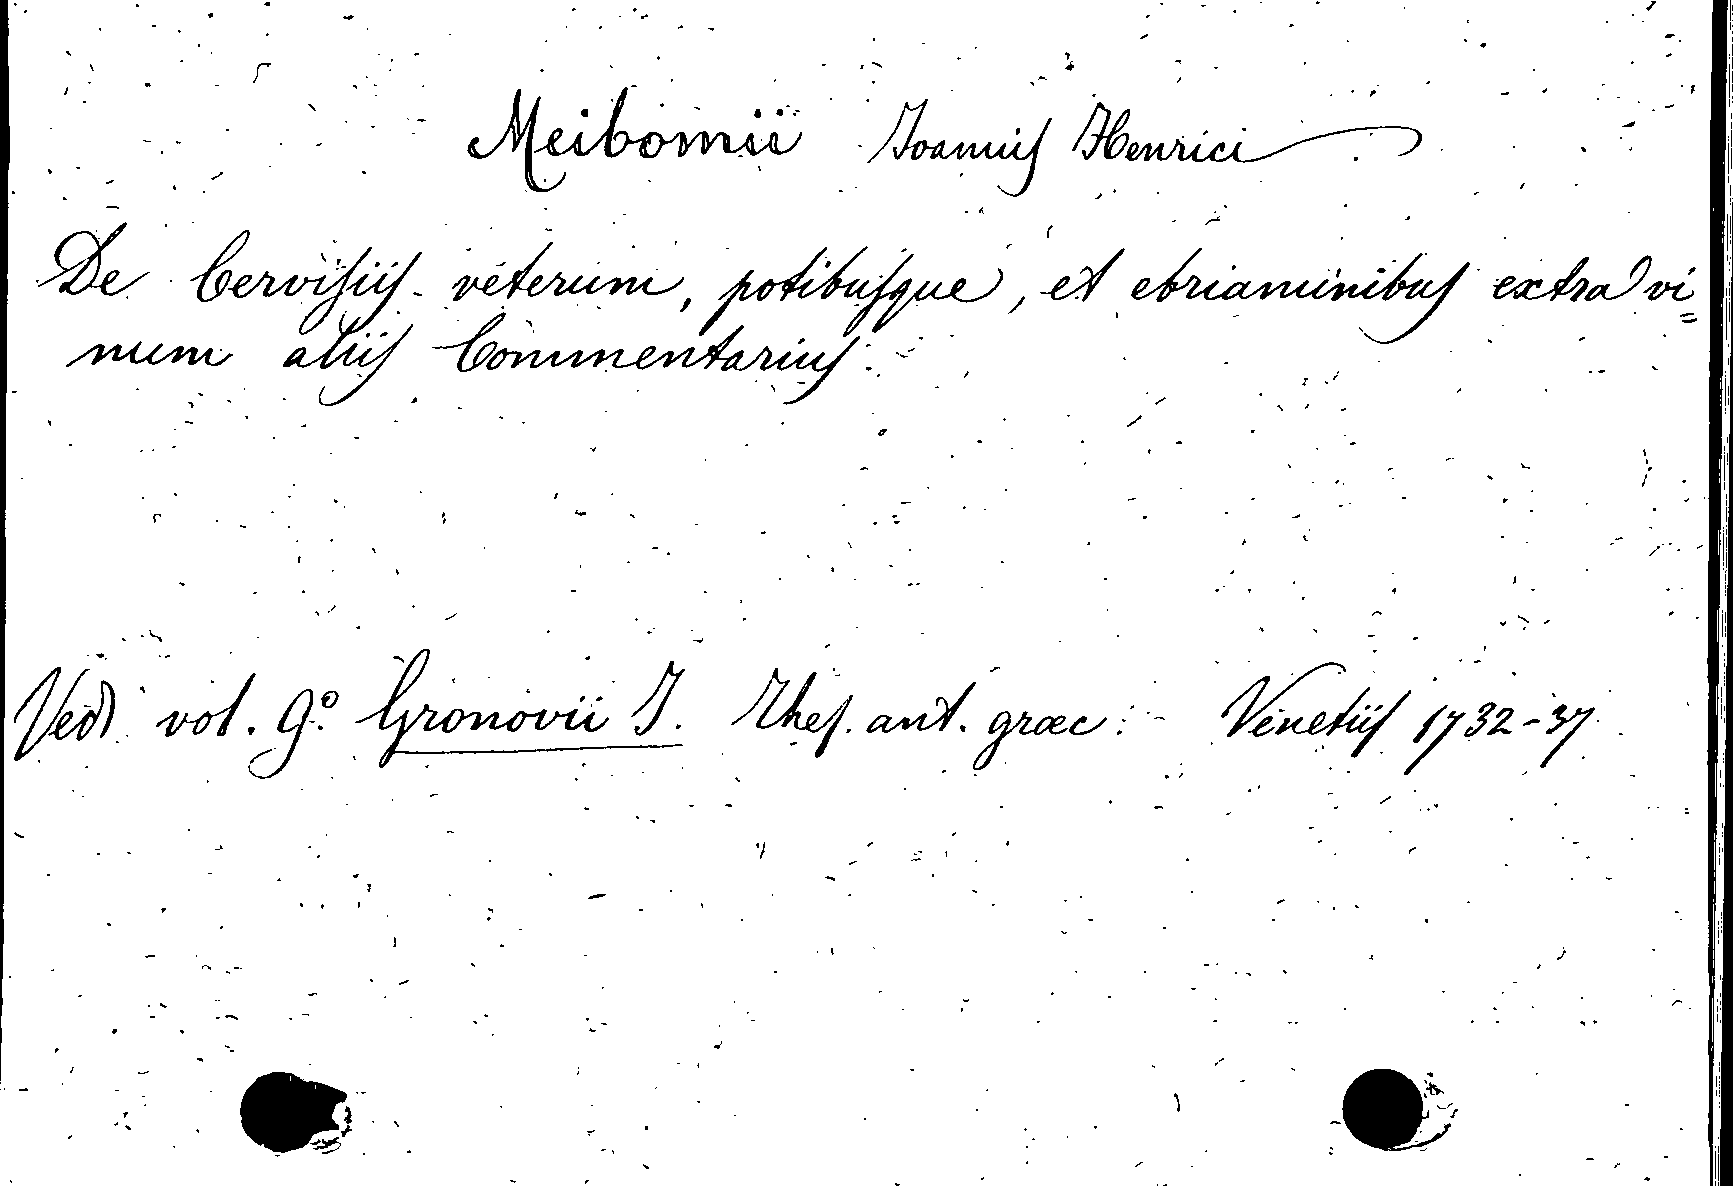 Meibomii Joannis Henrici
De Cervisiis veterum, potibusque, et ebriaminibus extra vi=
num aliis Commentarius.
Vedi vol. 9º Gronovii J. Thes. ant. græc: - Venetiis 1732-37